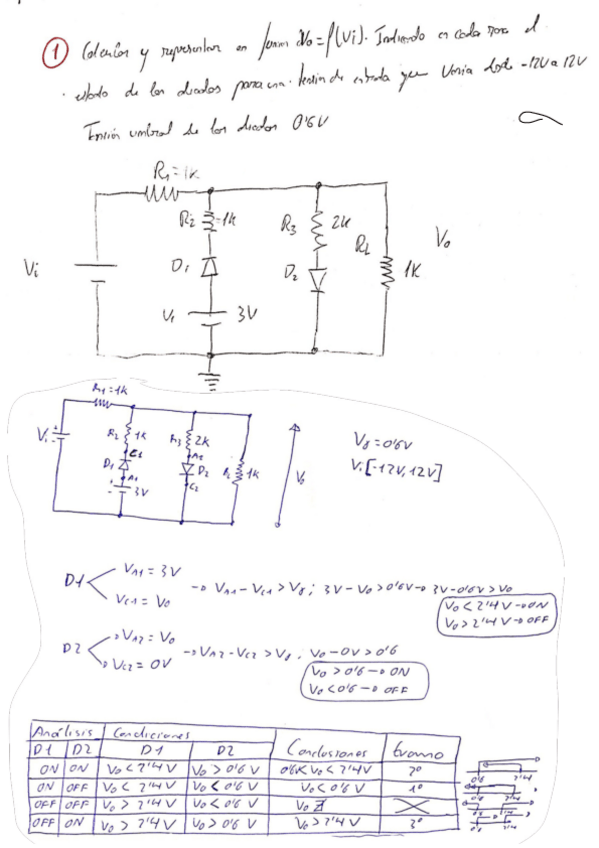 ① Calcular y representar en forma Vo=f(Vi). Indicando en cada zona el
estado de los diodos para una tensión de entrada que varía desde -12V a 12V
Tensión umbral de los diodos 0'6V
R1=1K
R2 = 1K
R3 2K
RL
1K
Vo
Vi
D1
D2
V1
3V
R1=1K
Vi
R2 1K
R3 2K
C1
D1
A1
3V
A2
D2
C2
RL 1K
Vo
Vγ=0'6V
Vi[-12V,12V]
D1
VA1 = 3V
VC1 = Vo
→ VA1-VC1>Vγ; 3V-Vo>0'6V→ 3V-0'6V>Vo
Vo<2'4V→ON
Vo>2'4V→OFF
D2
→VA2=Vo
→VC2=0V
→VA2-VC2>Vγ. Vo-0V>0'6
Vo>0'6→ON
Vo<0'6→OFF
Análisis Condiciones
D1 D2 D1 D2 Conclusiones Tramo
ON ON Vo<2'4V Vo>0'6V 0'6<Vo<2'4V 2º
ON OFF Vo<2'4V Vo<0'6V Vo<0'6V 1º
OFF OFF Vo>2'4V Vo<0'6V Vo ∄
OFF ON Vo>2'4V Vo>0'6V Vo>2'4V 3º
0'6 2'4
0'6 2'4
0'6 2'4
0'6 2'4